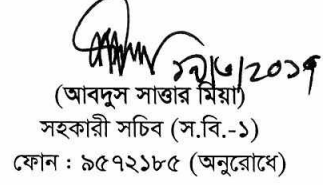 (আবদুস সাত্তার মিয়া)
সহকারী সচিব (স.বি.-১)
ফোন : ৯৫৭২১৮৫ (অনুরোধে)